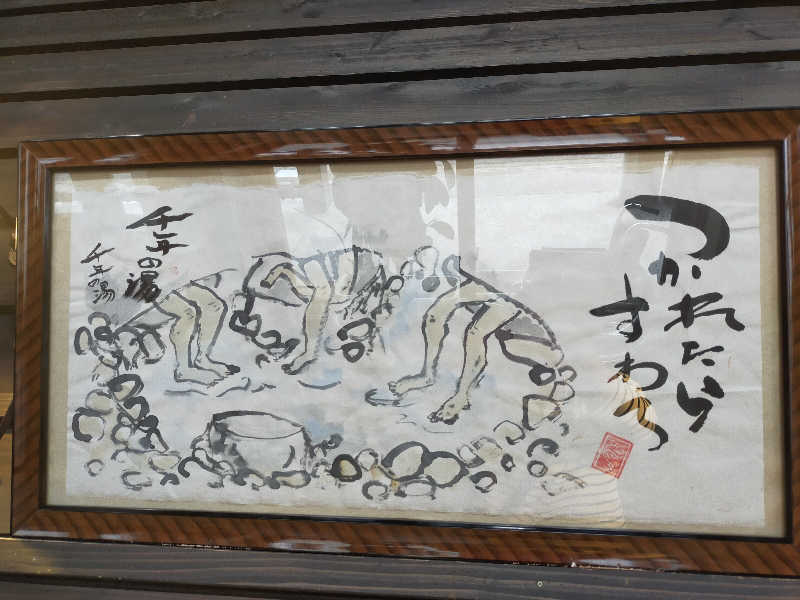 つかれたら
すわろう
千年の湯
千年の湯